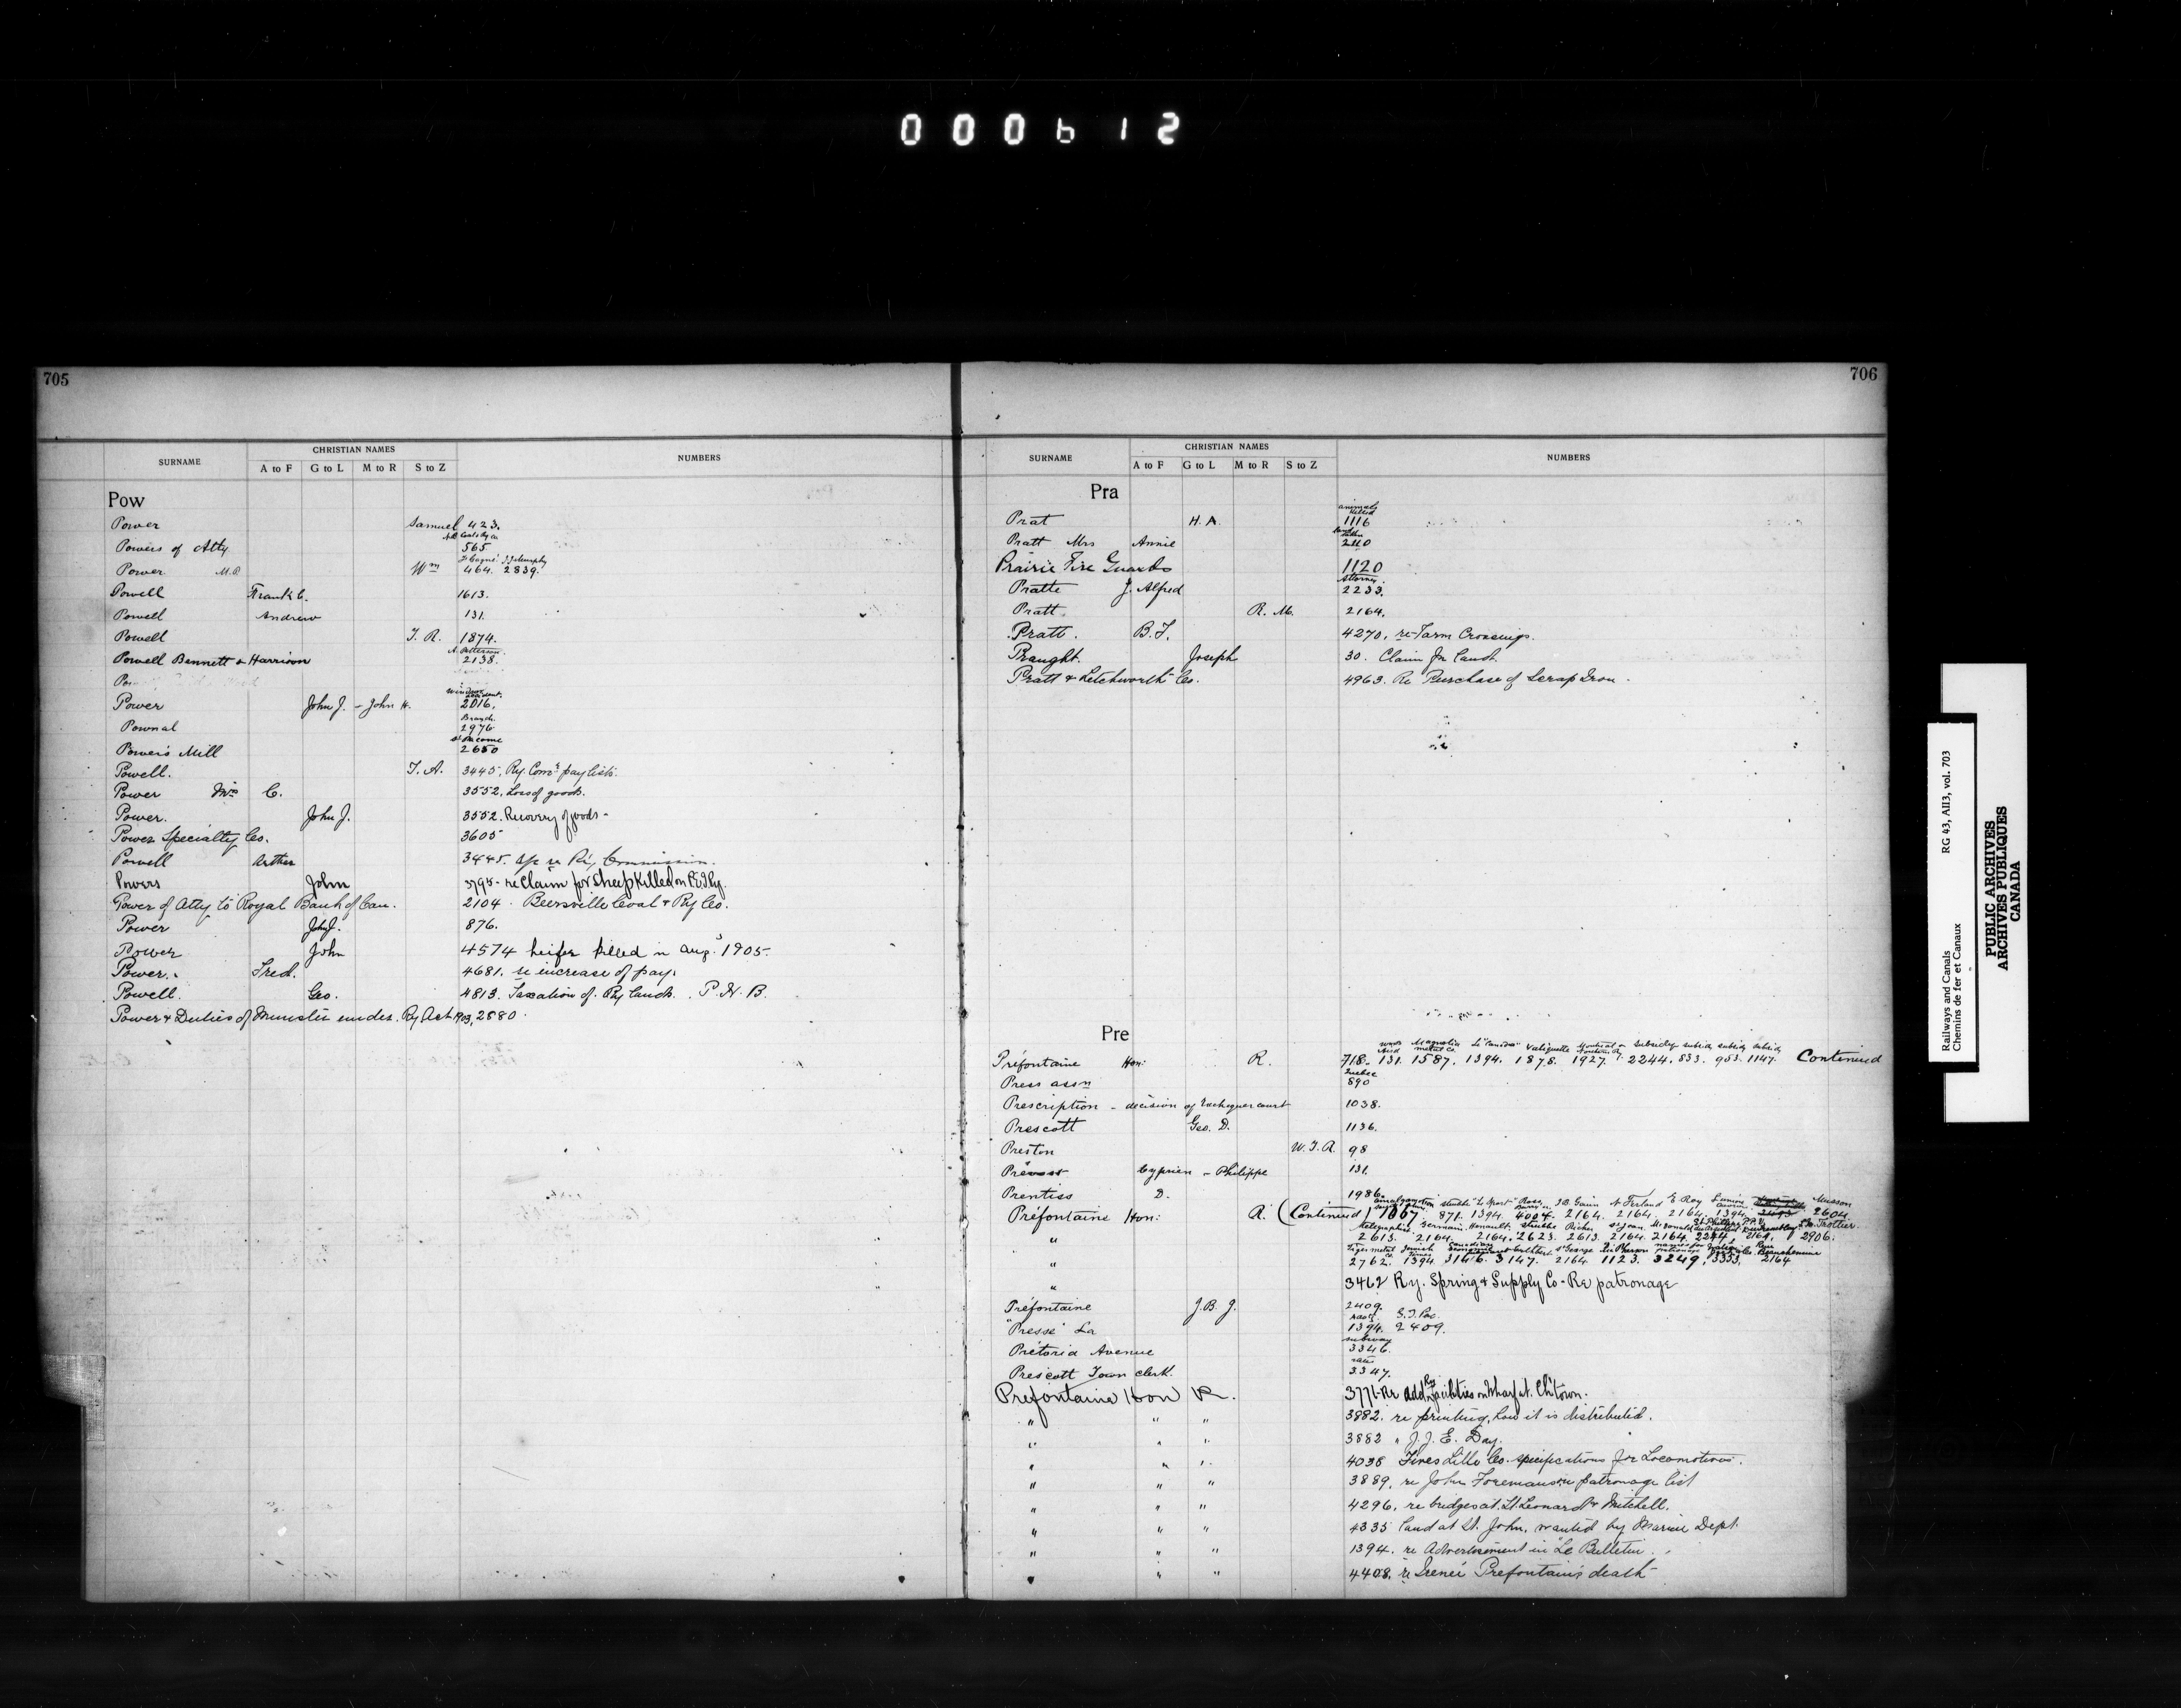 000612
705
SURNAME CHRISTIAN NAMES NUMBERS
A to F G to L M to R S to Z
Pow
Power Samuel 423.
Powers of Atty 565
Power M.P. Wm 464. 2839.
Powell Frank C. 1613.
Powell Andrew 131.
Powell T. R. 1874.
Powell Bennett & Harrison 2138.
Power John J. - John H. 2016.
Pownal Branch 2976
Power's Mill 2650
Powell. T. A. 3445, Ry. Comn pay lists.
Power Mrs C. 3552, Loss of goods.
Power. John J. 3552. Recovery of goods -
Power Specialty Co. 3605
Powell Arthur 3445. a/c re Ry Commission.
Powers John 3795 - re Claim for Sheep Killed on P.E.I. Ry.
Power of Atty to Royal Bank of Can. 2104. Beersville Coal & Ry Co.
Power John J. 876.
Power John 4574 heifer killed in Aug. 1905.
Power. Fred. 4681. re increase of pay.
Powell. Geo. 4813. Taxation of Ry lands. P. N. B.
Power & Duties of Minister under Ry Act 1903, 2880
706
SURNAME CHRISTIAN NAMES NUMBERS
A to F G to L M to R S to Z
Pra
animals killed
Prat H. A. 1116
Pratt Mrs Annie 2110
Prairie Fire Guards 1120
Attorney.
Pratte J. Alfred 2233.
Pratt R. M. 2164.
Pratt. B. F. 4270, re Farm Crossings.
Praught. Joseph 30. Claim for land.
Pratt & Letchworth Co. 4963. Re Purchase of Scrap Iron.
Pre
Magnolia metal Co. Le "Canada" Valiquette Montreal & Northern Ry. subsidy subsidy subsidy subsidy
Préfontaine Hon: R. 718. 131. 1587. 1394. 1878. 1927. 2244. 833. 953. 1147. Continued
Quebec
Press assn 890
Prescription - decision of Exchequer court 1038.
Prescott Geo. D. 1136.
Preston W. T. R. 98
Prévost Cyprien - Philippe 131.
Prentiss D. 1986.
amalgamation "Le Sport" J.B. Guim N. Ferland E. Roy Musson
Préfontaine Hon: R. (Continued) 1007. 871. 1394. 4004. 2164. 2164. 2164. 1394. 2604.
Germain. Henault. Richer St Jean. McDonald Trottier.
" 2613. 2164. 2164. 2623. 2613. 2164. 2164. 2244. 2164. 2906.
Tiger metal Co. St George McPherson
" 2762. 1394. 3146. 3147. 2164. 1123. 3249, 3353, 2164
" 3462 Ry. Spring & Supply Co - Re patronage
Préfontaine J. B. J. 2409.
G.T. Pac.
"Presse" La 1394. 2409.
subway
Pretoria Avenue 3346.
rates
Prescott Town clerk. 3347.
Prefontaine Hon R. 3771 - Re Addnl Ry facilities on Wharf at Ch'town.
" " " 3882. re printing, how it is distributed.
" " " 3882 " J. J. E. Day.
" " " 4038 Fives Lille Co. specifications for Locomotives.
" " " 3889, re John Foreman on patronage list
" " " 4296, re bridges at St. Leonard & Mitchell.
" " " 4335 land at St. John, wanted by Marine Dept.
" " " 1394. re Advertisement in "Le Bulletin.
" " " 4408, re Irenée Prefontaine's death
Railways and Canals RG 43, AII3, vol. 703
Chemins de fer et Canaux
PUBLIC ARCHIVES
ARCHIVES PUBLIQUES
CANADA